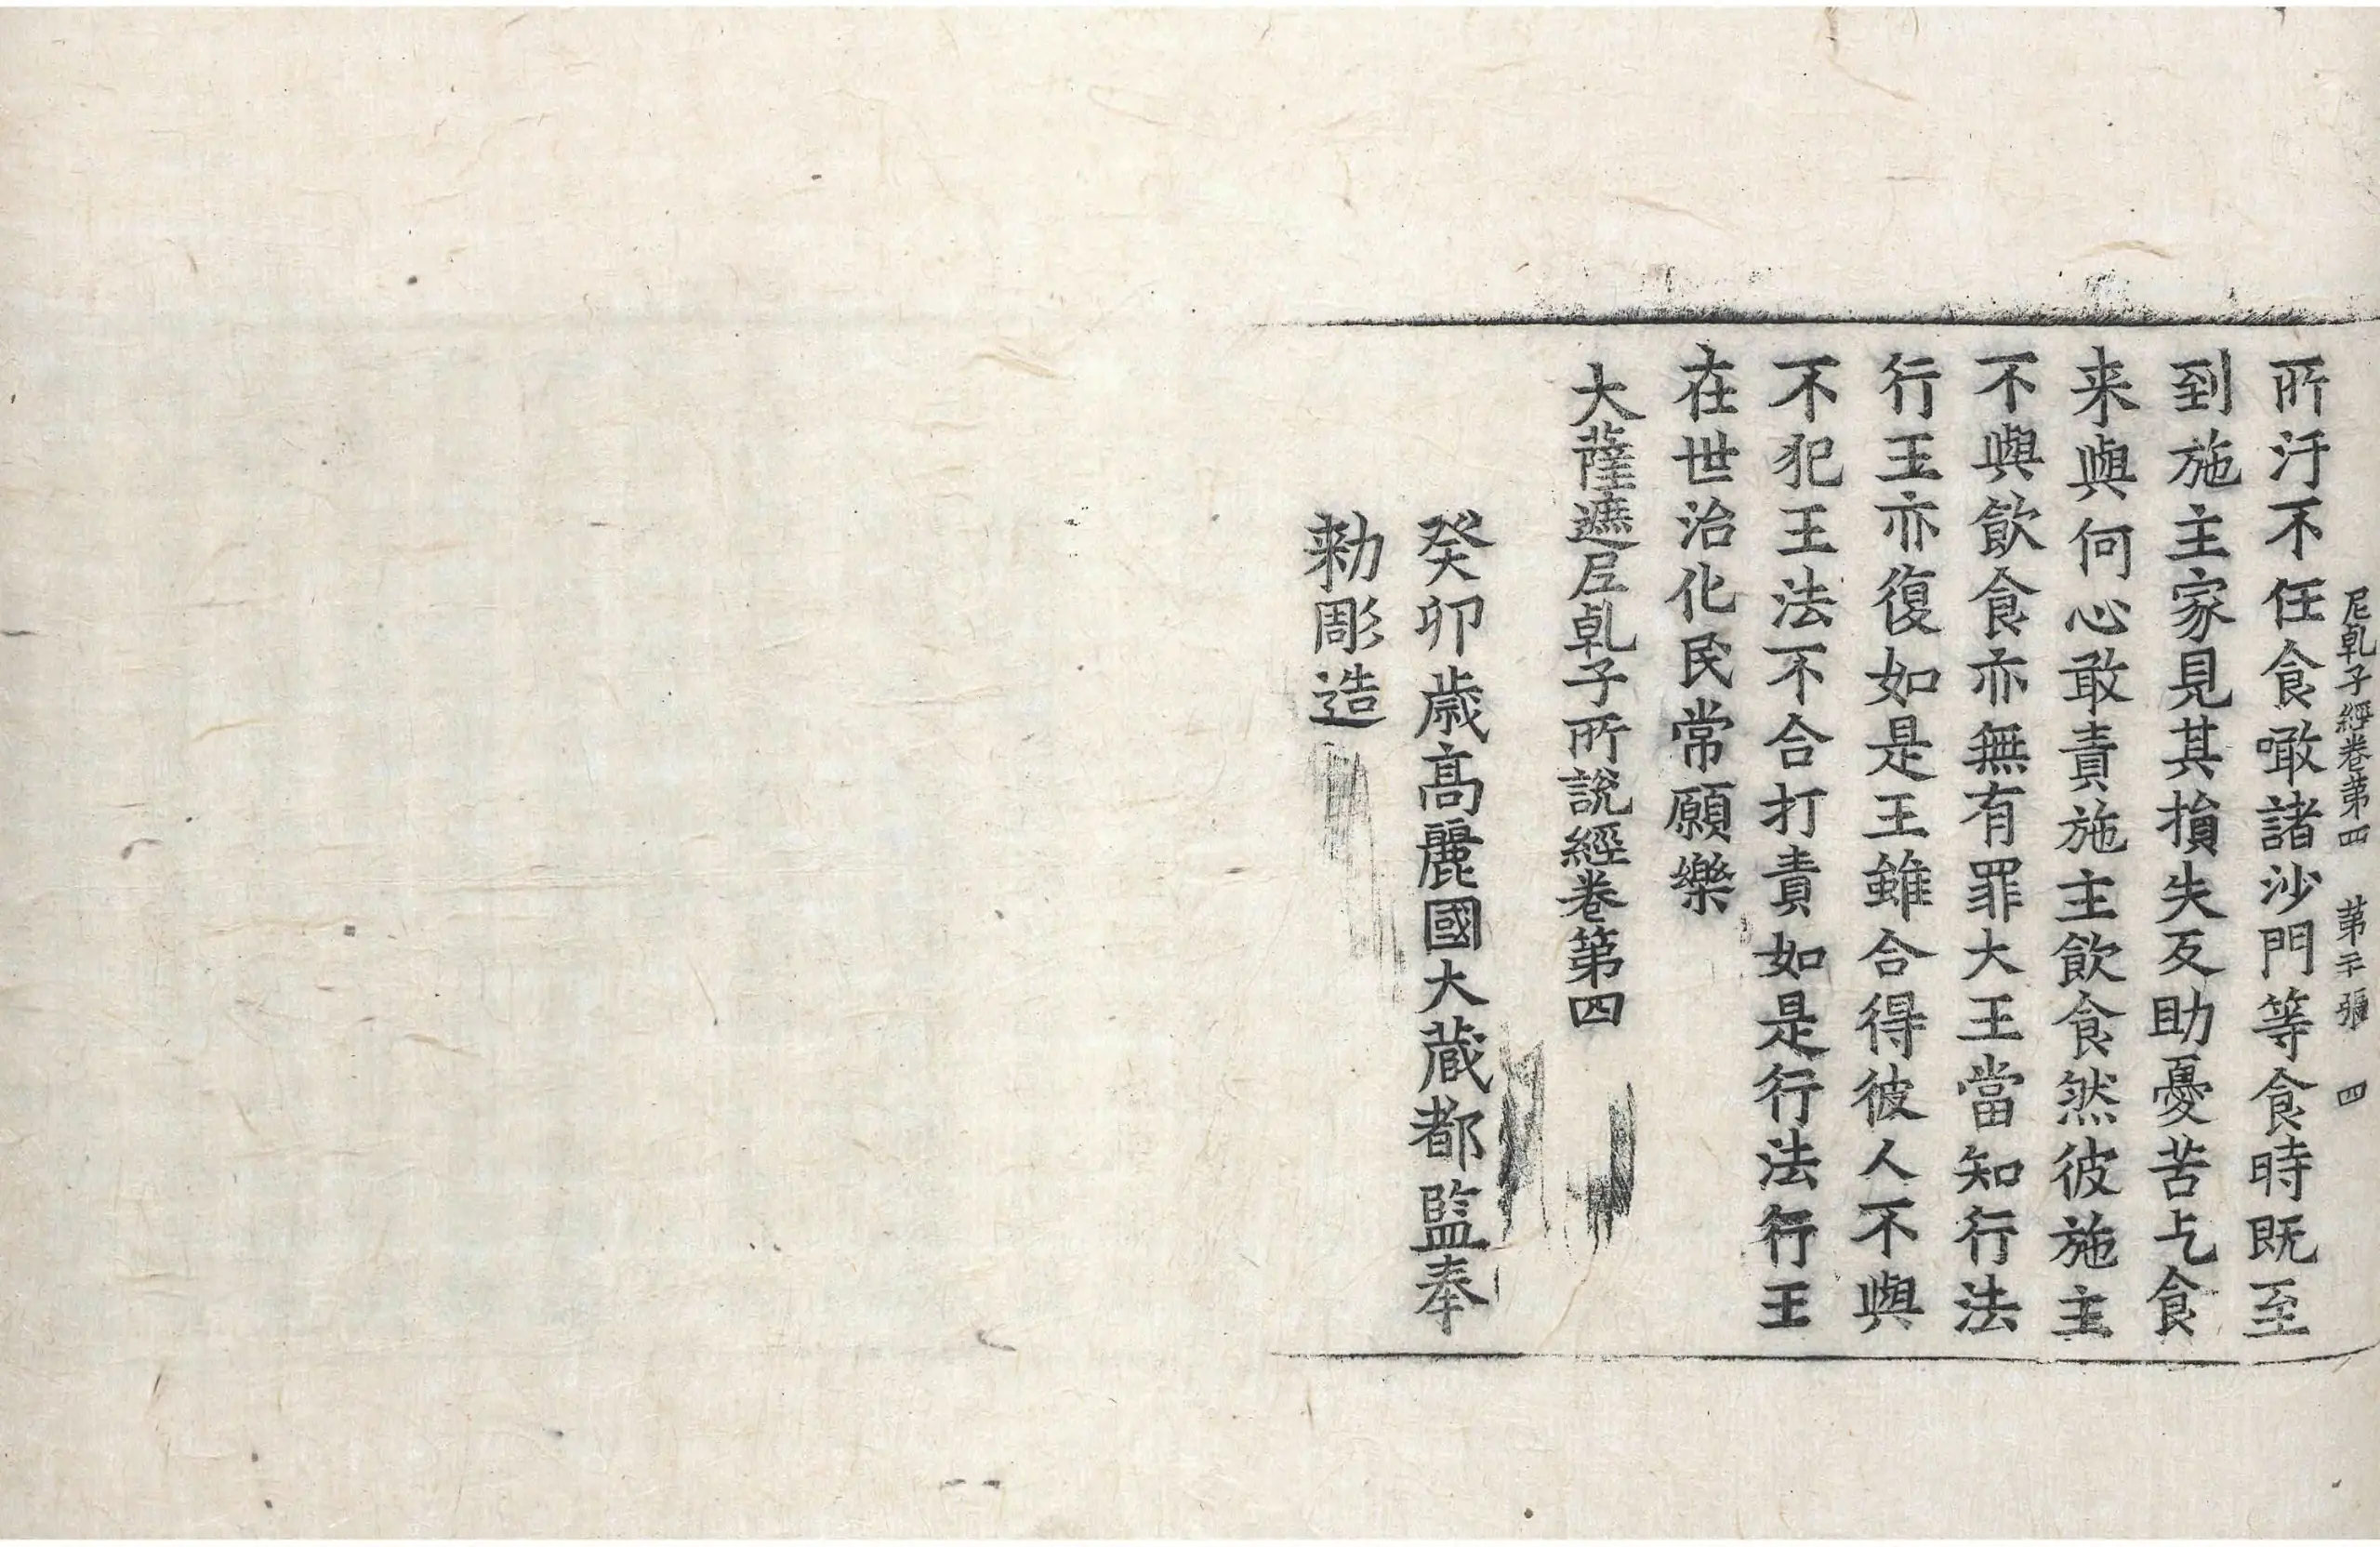 尼乹子經卷第四 第二十張 四
所汙不任食噉諸沙門等食時既至
到施主家見其損失反助憂苦乞食
来與何心敢責施主飲食然彼施主
不與飲食亦無有罪大王當知行法
行王亦復如是王雖合得彼人不與
不犯王法不合打責如是行法行王
在世治化民常願樂
大薩遮尼乹子所說經卷第四
癸卯歲高麗國大藏都監奉
勅彫造